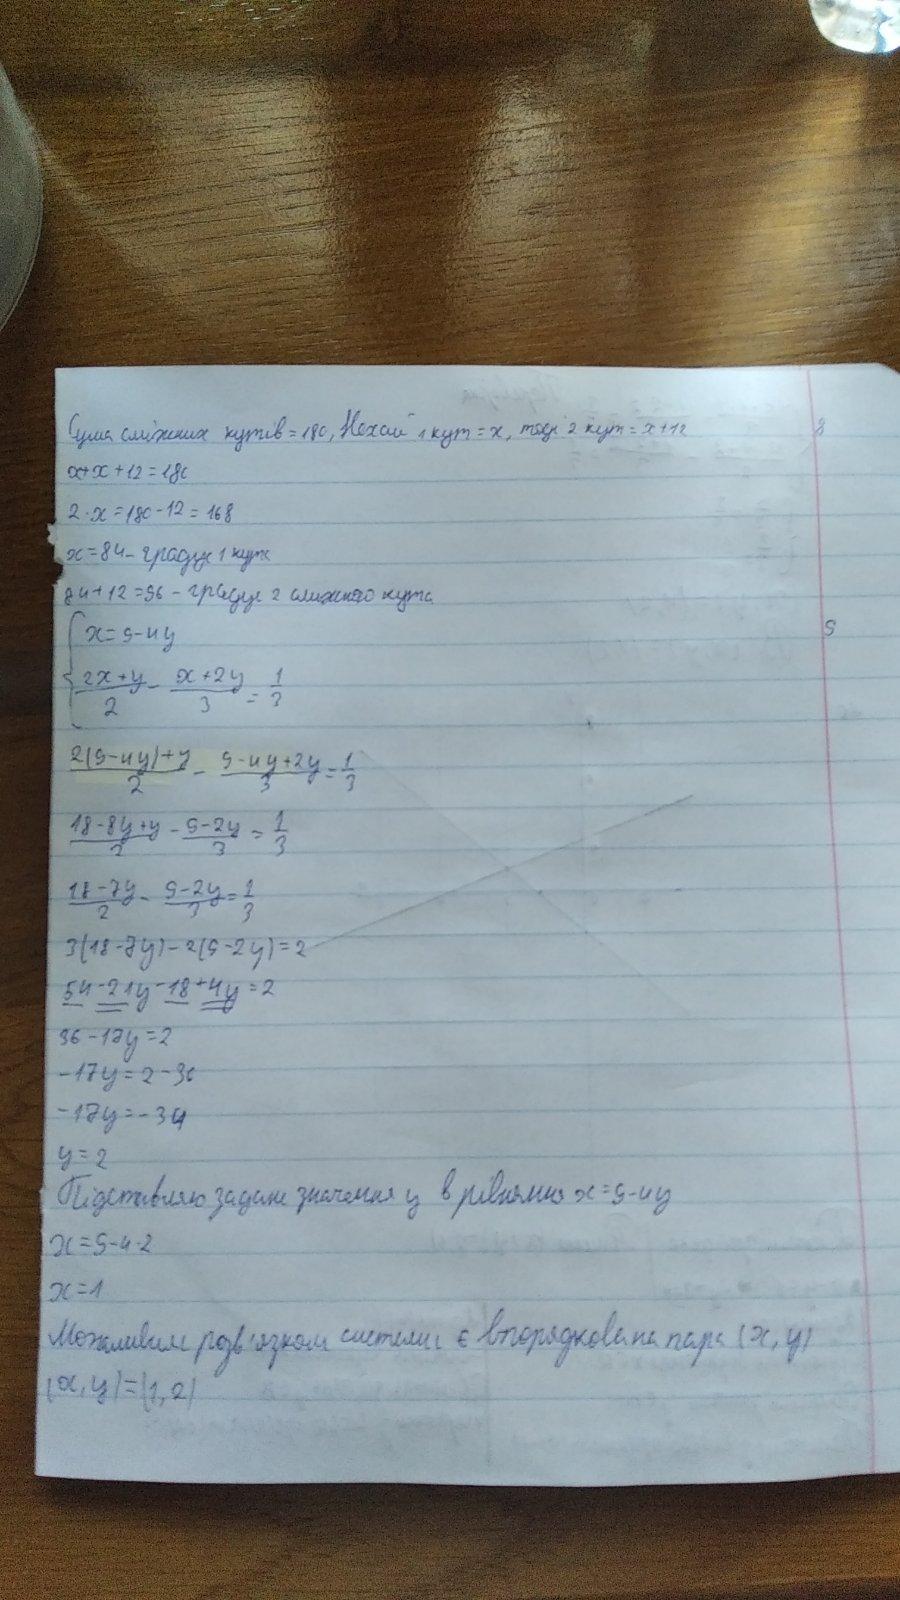 Сума сміжних кутів = 180, Нехай 1 кут = x, тоді 2 кут = x+12
8
x+x+12=180
2·x=180-12=168
x=84- градус 1 кута
84+12=96 - градус 2 сміжного кута
9
{ x=9-4y
(2x+y)/2 - (x+2y)/3 = 1/3
(2(9-4y)+y)/2 - (9-4y+2y)/3 = 1/3
(18-8y+y)/2 - (9-2y)/3 = 1/3
(18-7y)/2 - (9-2y)/3 = 1/3
3(18-7y)-2(9-2y)=2
54-21y-18+4y=2
36-17y=2
-17y=2-36
-17y=-34
y=2
Підставляю задане значення y в рівняння x=9-4y
x=9-4·2
x=1
Можливим розв'язком системи є впорядкована пара (x, y)
(x, y)=(1, 2)